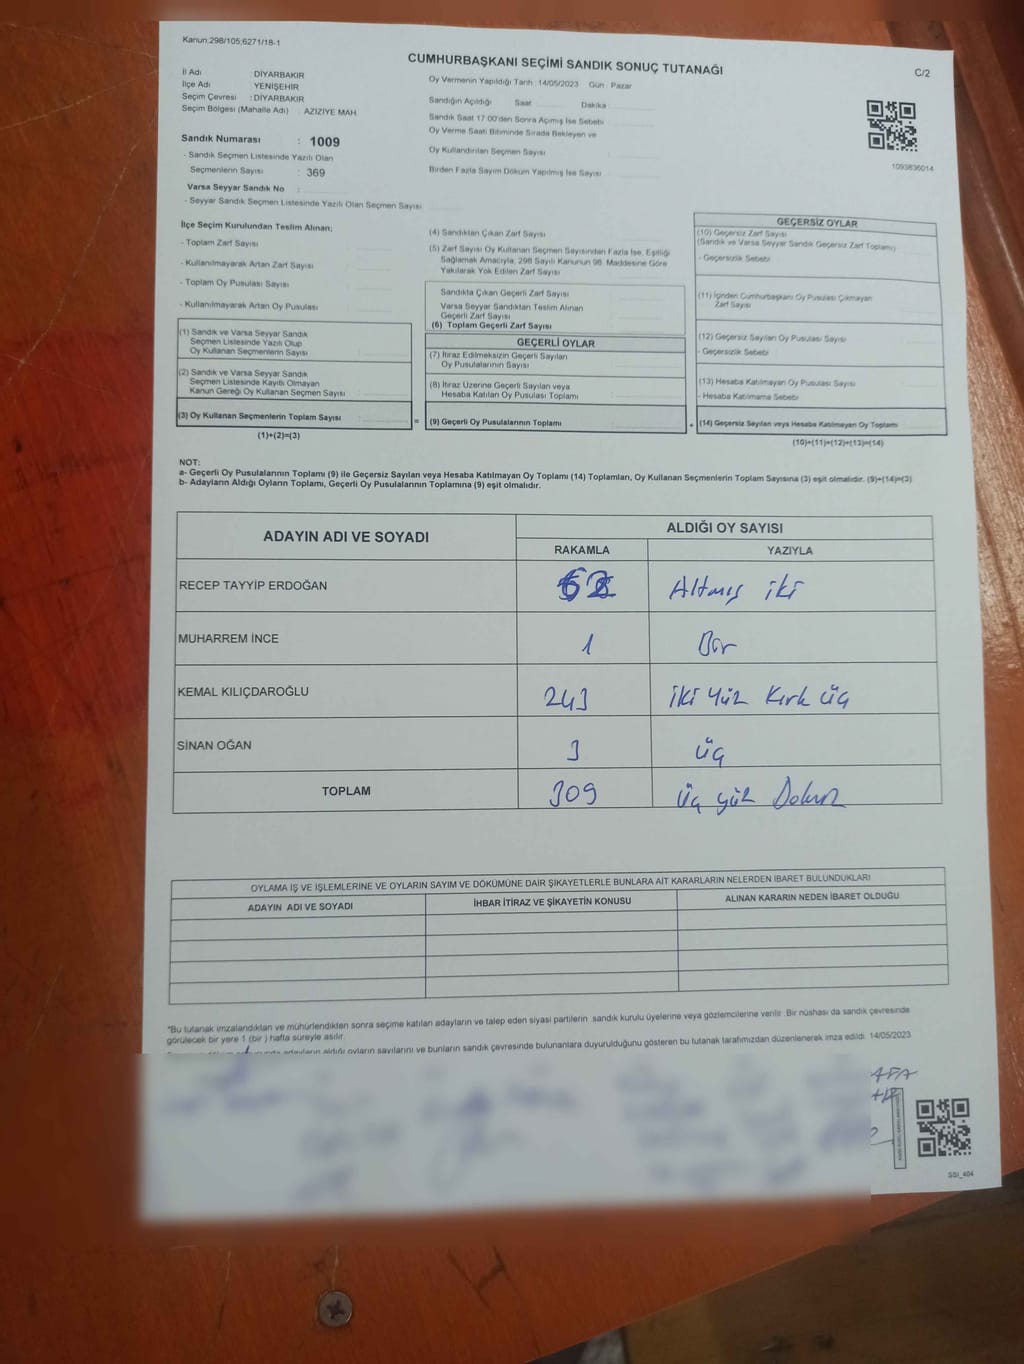 Kanun:298/105;6271/18-1
CUMHURBAŞKANI SEÇİMİ SANDIK SONUÇ TUTANAĞI
C/2
İl Adı : DİYARBAKIR
İlçe Adı YENİŞEHİR
Seçim Çevresi : DİYARBAKIR
Seçim Bölgesi (Mahalle Adı) : AZİZİYE MAH
Oy Vermenin Yapıldığı Tarih :14/05/2023 Gün : Pazar
Sandığın Açıldığı Saat Dakika
Sandık Saat 17:00'den Sonra Açımış İse Sebebi
Oy Verme Saati Bitiminde Sırada Bekleyen ve
Oy Kullandırılan Seçmen Sayısı
Birden Fazla Sayım Döküm Yapılmış İse Sayısı
1093836014
Sandık Numarası : 1009
- Sandık Seçmen Listesinde Yazılı Olan
Seçmenlerin Sayısı : 369
Varsa Seyyar Sandık No :
- Seyyar Sandık Seçmen Listesinde Yazılı Olan Seçmen Sayısı
İlçe Seçim Kurulundan Teslim Alınan;
- Toplam Zarf Sayısı
- Kullanılmayarak Artan Zarf Sayısı
- Toplam Oy Pusulası Sayısı
- Kullanılmayarak Artan Oy Pusulası
(1) Sandık ve Varsa Seyyar Sandık
Seçmen Listesinde Yazılı Olup
Oy Kullanan Seçmenlerin Sayısı
(2) Sandık ve Varsa Seyyar Sandık
Seçmen Listesinde Kayıtlı Olmayan
Kanun Gereği Oy Kullanan Seçmen Sayısı
(3) Oy Kullanan Seçmenlerin Toplam Sayısı
(1)+(2)=(3)
(4) Sandıktan Çıkan Zarf Sayısı
(5) Zarf Sayısı Oy Kullanan Seçmen Sayısından Fazla İse, Eşitliği
Sağlamak Amacıyla, 298 Sayılı Kanunun 98. Maddesine Göre
Yakılarak Yok Edilen Zarf Sayısı
Sandıkta Çıkan Geçerli Zarf Sayısı
Varsa Seyyar Sandıktan Teslim Alınan
Geçerli Zarf Sayısı
(6) Toplam Geçerli Zarf Sayısı
GEÇERLİ OYLAR
(7) İtiraz Edilmeksizin Geçerli Sayılan
Oy Pusulalarının Sayısı
(8) İtiraz Üzerine Geçerli Sayılan veya
Hesaba Katılan Oy Pusulası Toplamı
= (9) Geçerli Oy Pusulalarının Toplamı
GEÇERSİZ OYLAR
(10) Geçersiz Zarf Sayısı
(Sandık ve Varsa Seyyar Sandık Geçersiz Zarf Toplamı)
- Geçersizlik Sebebi
(11) İçinden Cumhurbaşkanı Oy Pusulası Çıkmayan
Zarf Sayısı
(12) Geçersiz Sayılan Oy Pusulası Sayısı
- Geçersizlik Sebebi
(13) Hesaba Katılmayan Oy Pusulası Sayısı
- Hesaba Katılmama Sebebi
+ (14) Geçersiz Sayılan veya Hesaba Katılmayan Oy Toplamı
(10)+(11)+(12)+(13)=(14)
NOT:
a- Geçerli Oy Pusulalarının Toplamı (9) ile Geçersiz Sayılan veya Hesaba Katılmayan Oy Toplamı (14) Toplamları, Oy Kullanan Seçmenlerin Toplam Sayısına (3) eşit olmalıdır. (9)+(14)=(3)
b- Adayların Aldığı Oyların Toplamı, Geçerli Oy Pusulalarının Toplamına (9) eşit olmalıdır.
ADAYIN ADI VE SOYADI ALDIĞI OY SAYISI
RAKAMLA YAZIYLA
RECEP TAYYİP ERDOĞAN 62 Altmış iki
MUHARREM İNCE 1 Bir
KEMAL KILIÇDAROĞLU 243 iki yüz Kırk üç
SİNAN OĞAN 3 üç
TOPLAM 309 üç yüz Dokuz
OYLAMA İŞ VE İŞLEMLERİNE VE OYLARIN SAYIM VE DÖKÜMÜNE DAİR ŞİKAYETLERLE BUNLARA AİT KARARLARIN NELERDEN İBARET BULUNDUKLARI
ADAYIN ADI VE SOYADI İHBAR İTİRAZ VE ŞİKAYETİN KONUSU ALINAN KARARIN NEDEN İBARET OLDUĞU
*Bu tutanak imzalandıktan ve mühürlendikten sonra seçime katılan adayların ve talep eden siyasi partilerin sandık kurulu üyelerine veya gözlemcilerine verilir. Bir nüshası da sandık çevresinde
görülecek bir yere 1 (bir) hafta süreyle asılır.
adayların aldığı oyların sayılarını ve bunların sandık çevresinde bulunanlara duyurulduğunu gösteren bu tutanak tarafımızdan düzenlenerek imza edildi. 14/05/2023
SSI_404